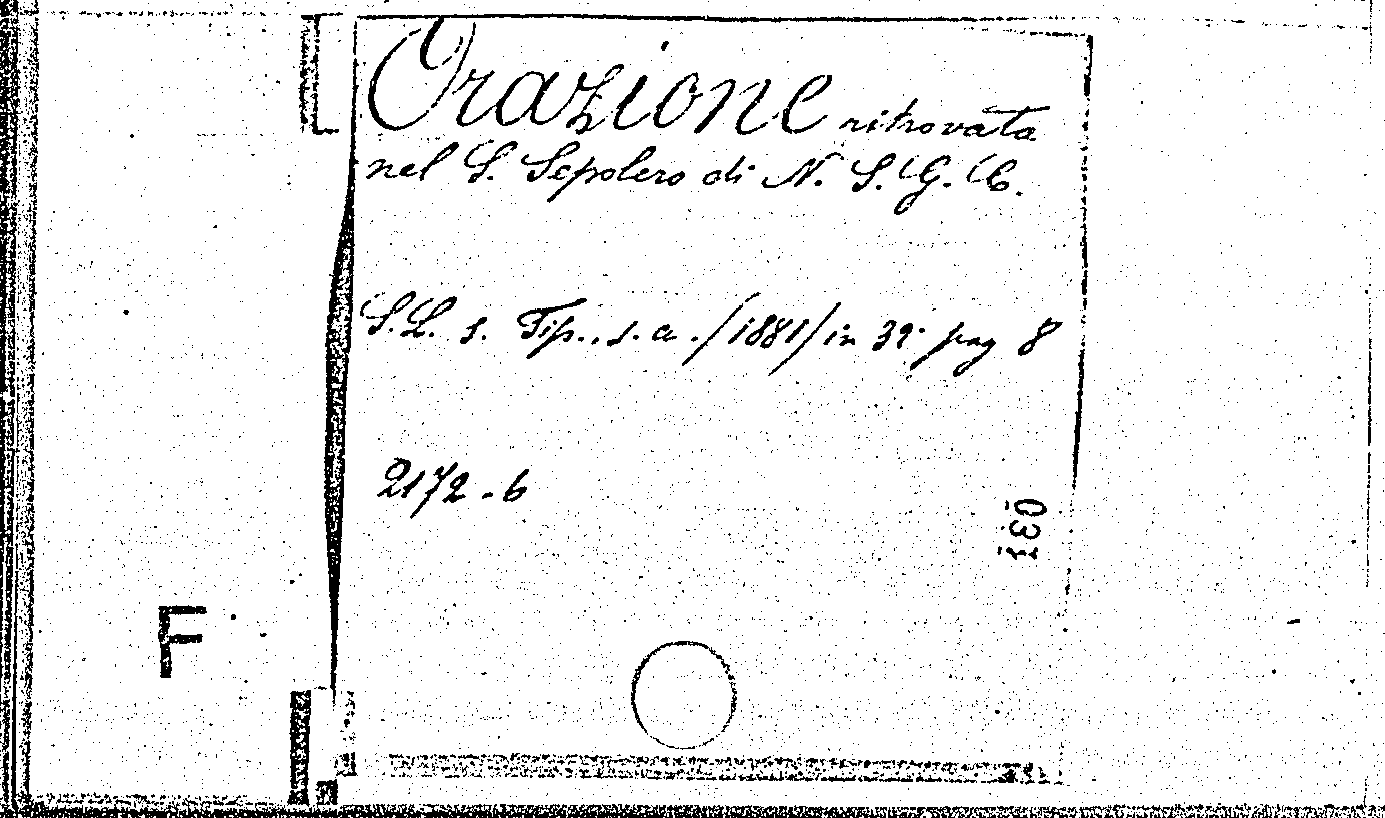 Orazione ritrovata
nel S. Sepolcro di N. S. G. C.
S. L. s. Tip., s. a. /1881/ in 32° pag 8
2172-6
F